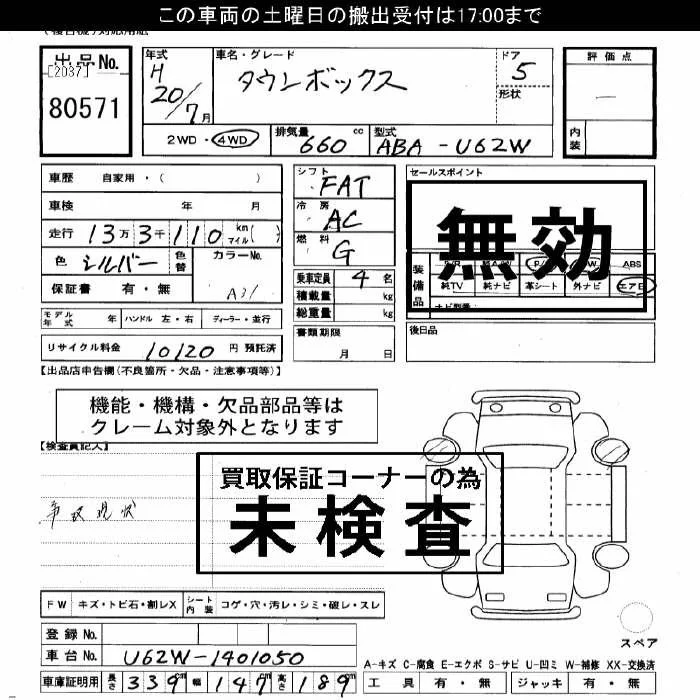 この車両の土曜日の搬出受付は17:00まで
出品No.
[2037]
80571
年式
H
20/7月
車名・グレード
タウンボックス
ドア
5
形状
評価点
内装
2WD・4WD
排気量 660 cc
型式 ABA-U62W
車歴 自家用・( )
車検 年 月
走行 13万3千110 km マイル( )
色 シルバー 色替
カラーNo.
A31
保証書 有・無
シフト FAT
冷房 AC
燃料 G
乗車定員 4 名
積載量 kg
総重量 kg
セールスポイント
無効
装備品
ABS
純TV 純ナビ 革シート 外ナビ エアB
モデル年式 年 ハンドル 左・右 ディーラー・並行
書類期限
月 日
後日品
リサイクル料金 10120 円 預託済
【出品店申告欄(不良箇所・欠品・注意事項等)】
機能・機構・欠品部品等は
クレーム対象外となります
【検査員記入】
買取保証コーナーの為
未検査
事故現状
FW キズ・トビ石・割レX シート内装 コゲ・穴・汚レ・シミ・破レ・スレ
スペア
登録No.
車台No. U62W-1401050
A-キズ C-腐食 E-エクボ S-サビ U-凹ミ W-補修 XX-交換済
車庫証明用 長さ 339m 幅 147m 高さ 189m
工具 有・無 ジャッキ 有・無